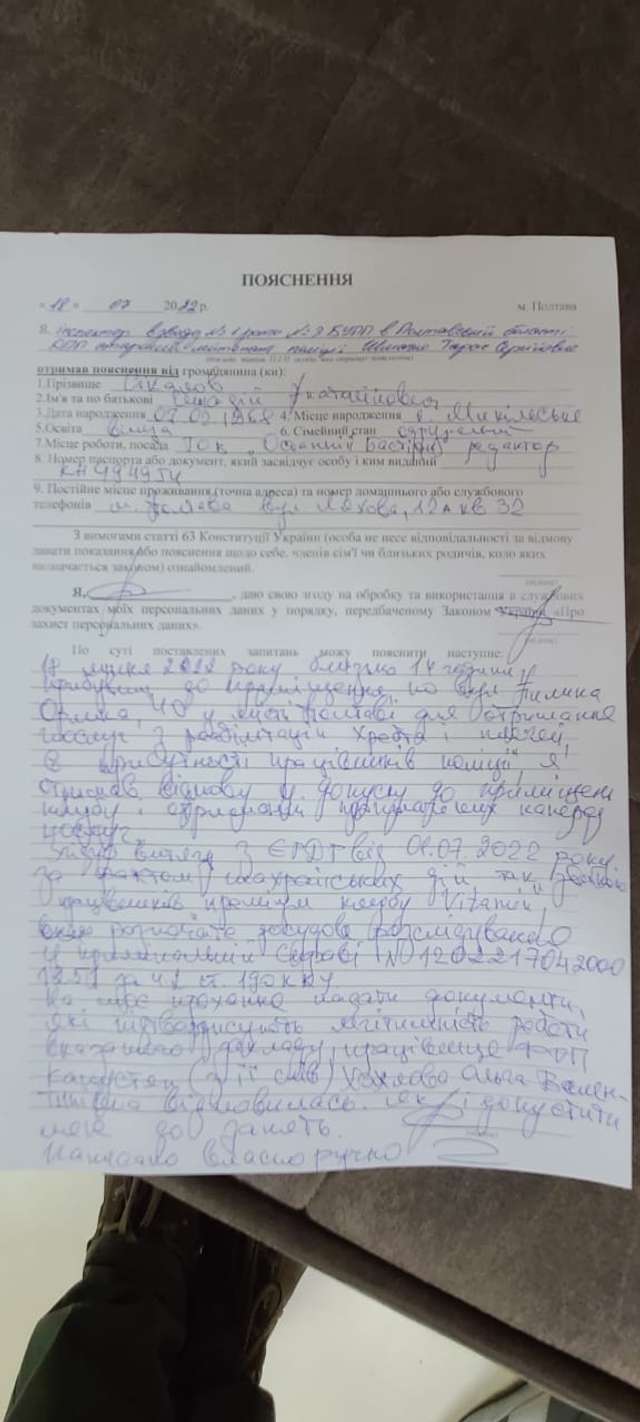 ПОЯСНЕННЯ
« 18 » 07 2022 р. м. Полтава
Я, інспектор взводу №1 роти №3 БУПП в Полтавській області
ДПП лейтенант поліції
отримав пояснення від громадянина (ки):
1.Прізвище
2.Ім'я та по батькові Геннадій
3.Дата народження 07.02.1968 4. Місце народження Микільське
5.Освіта вища 6. Сімейний стан одружений
7.Місце роботи, посада ТОВ „Останній Бастіон" редактор
8. Номер паспорта або документ, який засвідчує особу і ким виданий
КН
9. Постійне місце проживання (точна адреса) та номер домашнього або службового
телефонів м. Полтава вул 12а кв 32
З вимогами статті 63 Конституції України (особа не несе відповідальності за відмову
давати показання або пояснення щодо себе, членів сім'ї чи близьких родичів, коло яких
визначається законом) ознайомлений.
Я, , даю свою згоду на обробку та використання в службових
документах моїх персональних даних у порядку, передбаченому Законом України «Про
захист персональних даних».
По суті поставлених запитань можу пояснити наступне:
18 липня 2022 року близько 14 години я
прибувши до приміщення по вул Пилипа
Орлика, 40 у місті Полтаві для отримання
послуг з реабілітації хребта і плечей,
в присутності працівників поліції, я
отримав відмову у допуску до приміщень
клубу і отримання
послуг.
витягу з ЄРДР від 01.07.2022 року
за фактом шахрайських дій так званих
працівників преміум клубу Vitamin,
розпочато досудове розслідування
у кримінальній справі N 1202217042000
за ч.1 ст. 190 ККУ.
На моє прохання надати документи,
які підтверджують легітимність роботи
вказаного закладу, працівниця ФОП
(з її слів) Ольга Вален-
тинівна відмовилась, як і допустити
мене до занять.
Написано власноручно